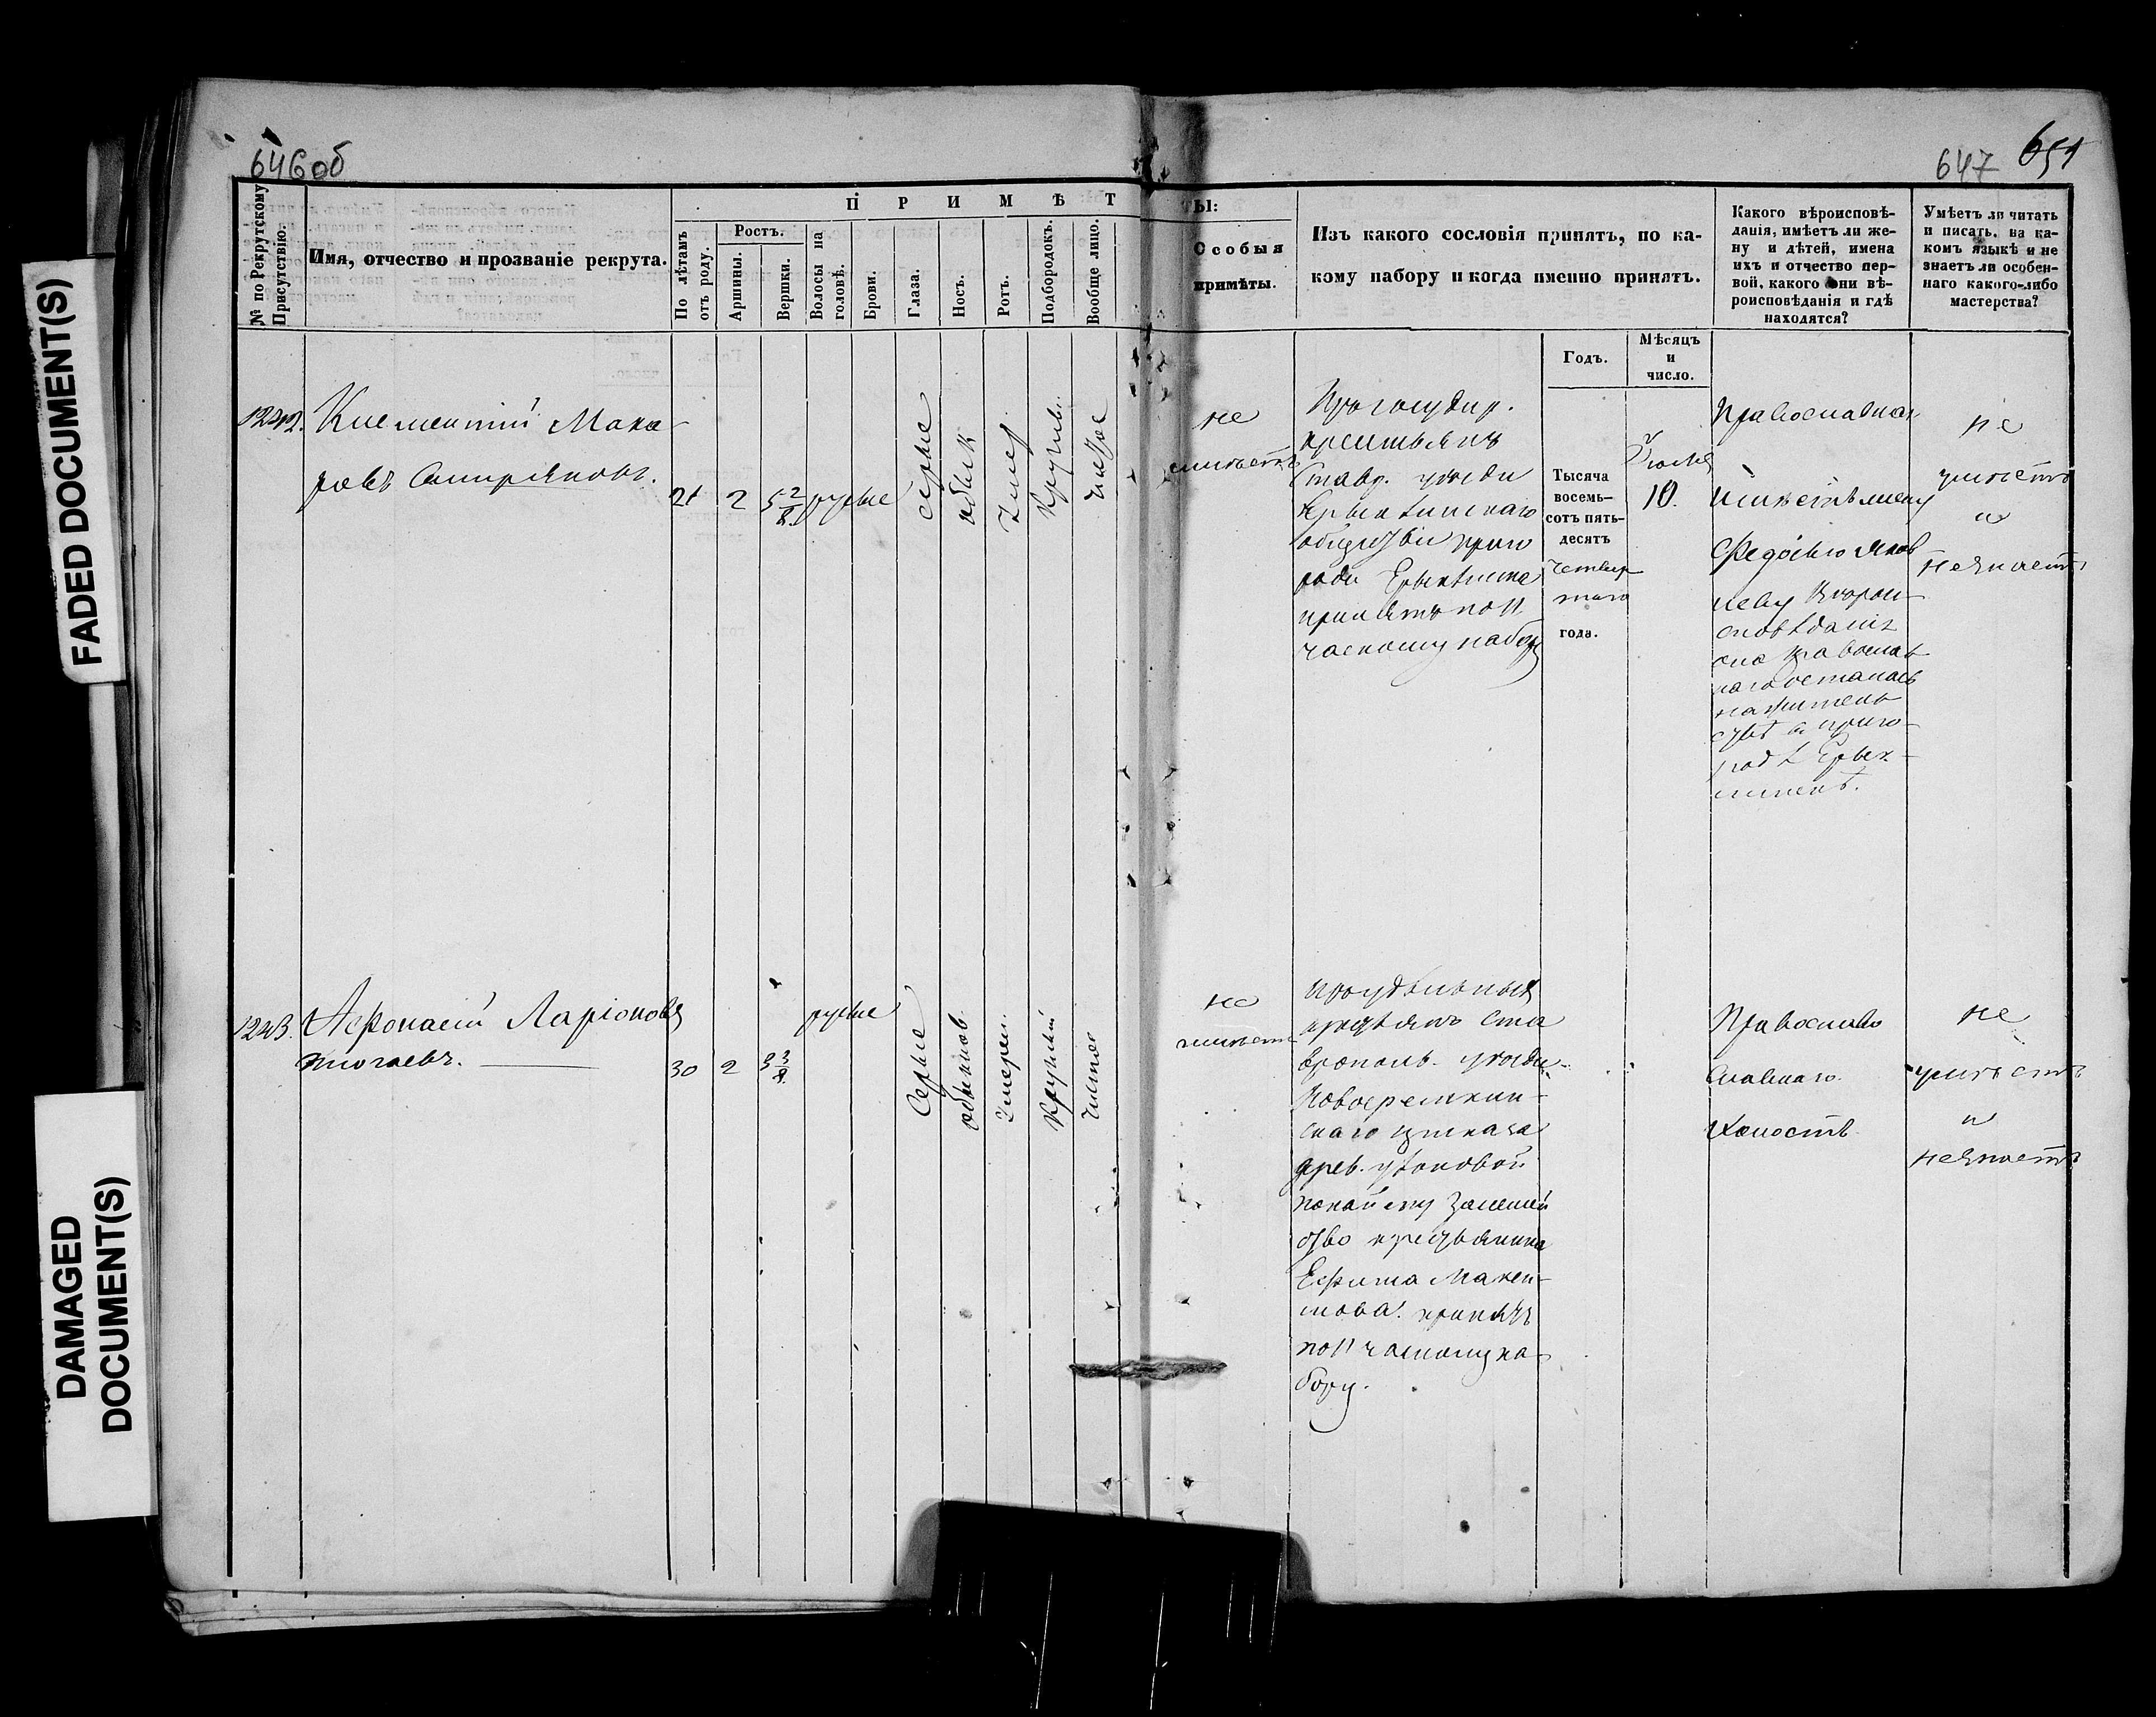 FADED DOCUMENT(S)
DAMAGED
DOCUMENT(S)
646об
647 651
№ по Рекрутскому
Присутствію.
Имя, отчество и прозваніе рекрута.
П Р И М Ѣ Т
ТЫ:
По лѣтамъ
отъ роду.
Ростъ.
Аршины.
Вершки.
Волосы на
головѣ.
Брови.
Глаза.
Носъ.
Ротъ.
Подбородокъ.
Вообще лицо.
Особыя
примѣты.
Изъ какого сословія принятъ, по ка-
кому набору и когда именно принятъ.
Годъ.
Мѣсяцъ
и
число.
Какого вѣроисповѣ-
данія, имѣетъ ли же-
ну и дѣтей, имена
ихъ и отчество пер-
вой, какого они вѣ-
роисповѣданія и гдѣ
находятся?
Умѣетъ ли читать
и писать, на ка-
комъ языкѣ и не
знаетъ ли особен-
наго какого-либо
мастерства?
1242.
Клементій Мака
ровъ
21
2
5 2/8
русые
серые
обык
умер
кругл.
чистое
не
имѣетъ
крестьянъ
Ставр. уѣзда
общества приго
рода Ерыклинска
принятъ по 11
частному набору
Тысяча
восемь-
сотъ пять-
десятъ
четвер
таго
года.
Іюля
10.
Православнаго
имѣетъ жену
Федосью Яков
леву вѣроис
повѣданія
она православ
наго осталась
на житель
ствѣ въ приго-
родѣ Ерык-
линскѣ.
не
умѣетъ
и
незнаетъ
1243.
Афонасій Ларіоновъ
30
2
3 3/8
русые
Серые
обыкнов.
умерен.
круглый
чистое
не
имѣетъ
крестьянъ Ста
врополь. уѣзда
Новоеремкин-
скаго приказа
дерев.
крестьянина
Ефима
принятъ
по 11 частному на
бору.
Правосла
славнаго
Холостъ
не
умѣетъ
и
незнаетъ